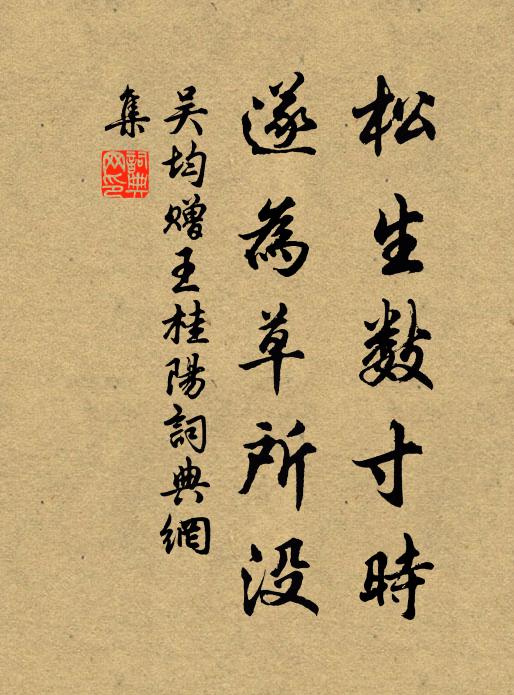 松生數寸時
遂為草所没
吴均贈王桂陽詞典網
集
詞典
网印